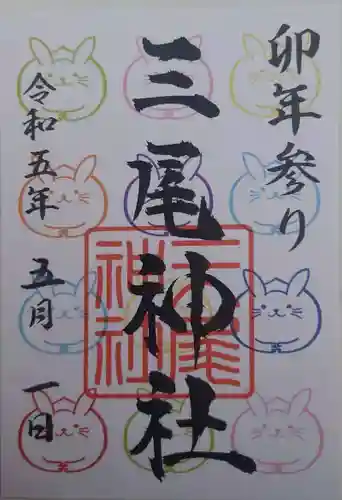 卯年参り
三尾神社
三尾神社
令和五年 五月 一日